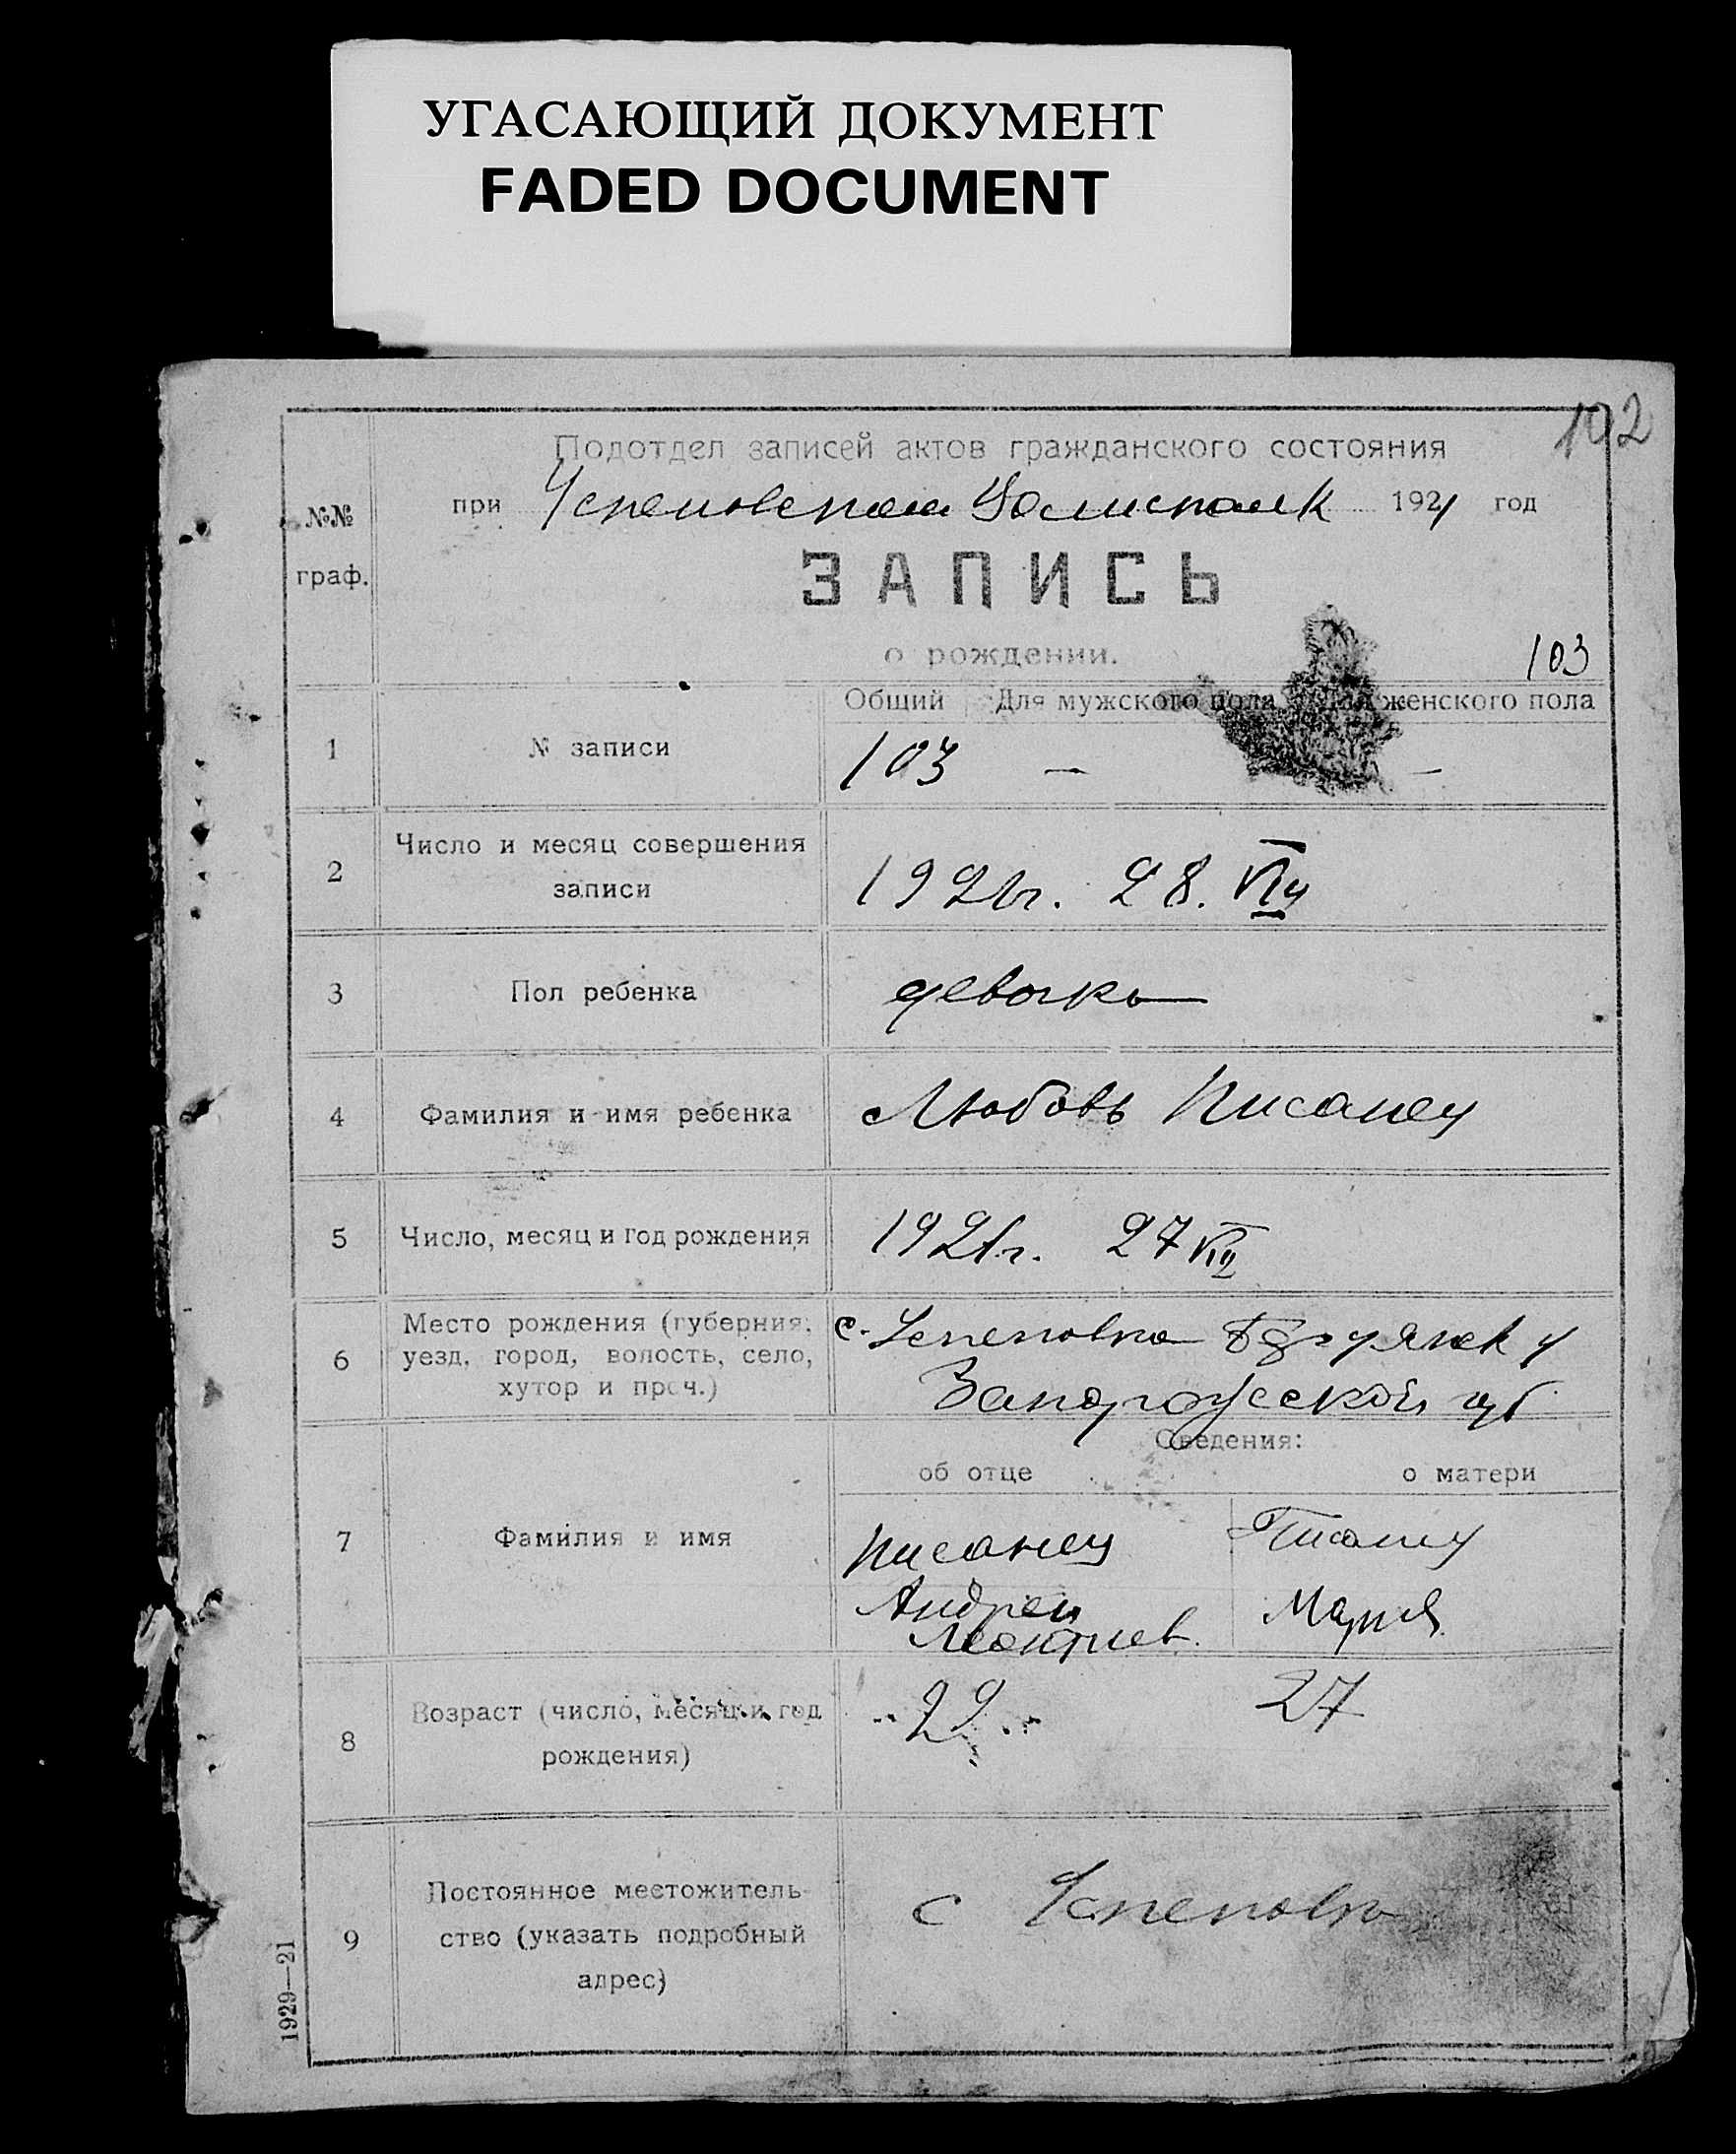 УГАСАЮЩИЙ ДОКУМЕНТ
FADED DOCUMENT
192
Подотдел записей актов гражданского состояния
№№ граф.
при Успеновском Волисполк 1921 год
ЗАПИСЬ
о рождении.
103
Общий Для мужского пола Для женского пола
1 № записи 103 — —
2 Число и месяц совершения записи 1921г. 28. VII
3 Пол ребенка девочка
4 Фамилия и имя ребенка Любовь Писанец
5 Число, месяц и год рождения 1921г. 27 VII
6 Место рождения (губерния, уезд, город, волость, село, хутор и проч.)
с. Успеновка у
Запорожской губ
Сведения:
об отце о матери
7 Фамилия и имя
Писанец Писанец
Андрей Мария
Леонтиев.
8 Возраст (число, месяц и год рождения) 22 27
9 Постоянное местожительство (указать подробный адрес)
с Успеновка
1929—21